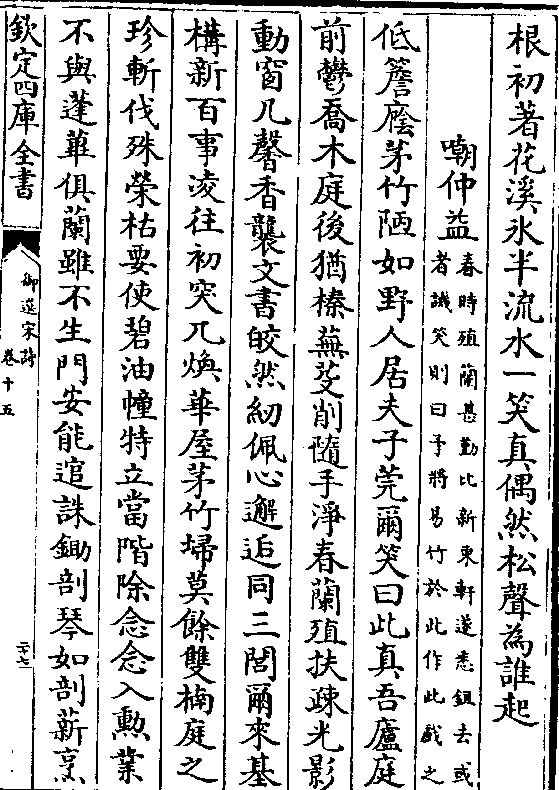 根初著花溪氷半流水一笑真偶然松聲為誰起
嘲仲益
春時殖蘭甚勤比新東軒遂悉鉏去或
者譏笑則曰予將易竹於此作此戲之
低簷廕茅竹陋如野人居夫子莞爾笑曰此真吾廬庭
前鬱喬木庭後猶榛蕪芟削隨手淨春蘭殖扶疎光影
動窗几馨香襲文書皎然紉佩心邂逅同三閭爾來基
構新百事凌往初突兀煥華屋茅竹埽莫餘雙楠庭之
珍斬伐殊榮枯要使碧油幢特立當階除念念入勲業
不與蓬蓽俱蘭雖不生門安能逭誅鋤剖琴如剖薪烹
欽定四庫全書
御選宋詩
卷十五
二十七